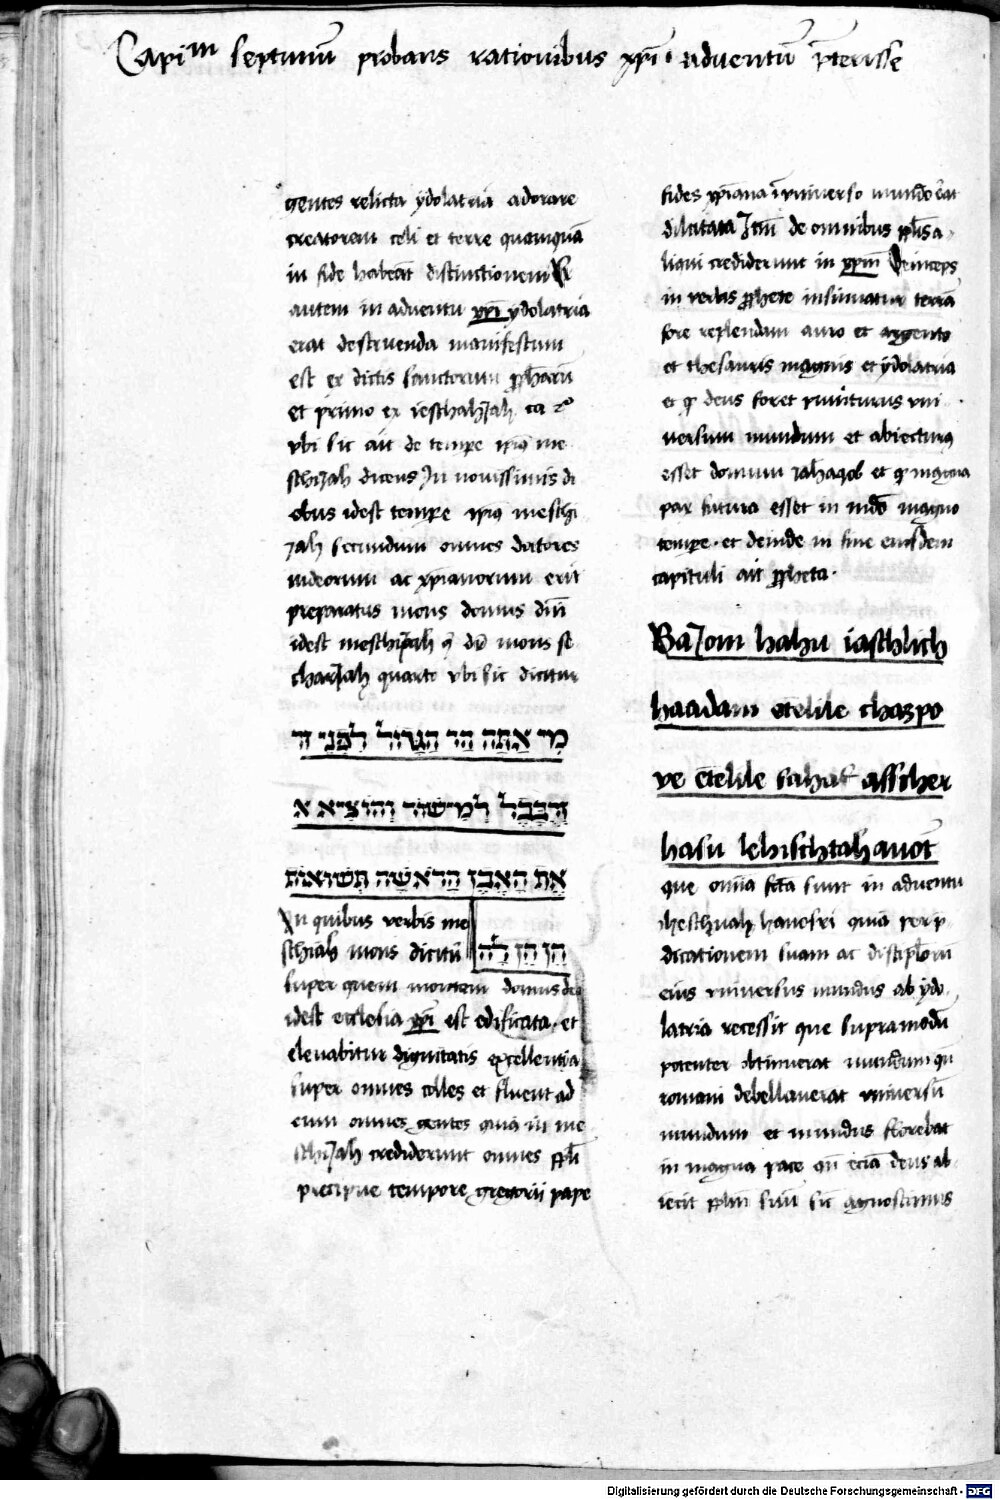 Capim septimū probans rationibus xp̄i adventū p̄terisse
gentes relicta ydolatria adorare
creatorem celi et terre quamquā
in fide habeāt distinctionem
autem in adventu xp̄i ydolatria
erat destruenda manifestum
est ex dictis sanctorum ꝓph̄arū
et primo ex ieschahJah ca 2o
vbi sic ait de tempe ipiꝰ me
schiJah dicens In novissimis di
ebus idest tempe ipiꝰ meschi
Jah secundum omnes doctores
iudeorum ac xp̄ianorum erit
preparatus mons domus dn̄i
idest meschiJah mons se
charJah quarto vbi sic dicitur
מִי אַתָּה הַר הַגָּדוֹל לִפְנֵי זר
זְרֻבָּבֶל לְמִישׁוֹר וְהוֹצִיא א
אֶת הָאֶבֶן הָרֹאשָׁה תְּשׁוּאוֹת
In quibus verbis me
schiah mons dicitū
חֵן חֵן לָהּ
super quem montem domus dei
idest ecclesia xp̄i est edificata · et
elevabitur dignitatis excellentia
super omnes colles et fluent ad
eum omnes gentes quia in me
schiJah crediderunt omnes ppl̄i
precipue tempore gregorii pape
fides xp̄iana i vniverso mundo erat
dilatata Itm̄ de omnibus ppl̄is a
liqui crediderunt in xp̄m Deinceps
in verbis ꝓphete insinuatur terrā
fore replendam auro et argento
et thesauris magnis et ydolatria
et ꝙ deus foret puniturus vni
versum mundum et abiecturꝰ
esset domum Jahacob et ꝙ magna
pax futura esset in mdō magno
tempe · et deinde in fine eiusdem
capituli ait ꝓpheta ·
BaJom hahu iaschlich
haadam etelile chaspo
ve etelile sahaf asscher
hasu lehischtahavot
que omīa fcta sunt in adventu
iheschuah hanosri quia per p
dicationem suam ac discipl̄orū
eius vniversus mundus ab ydo
latria recessit que supra modū
potenter obtinuerat mundum qn̄
romani debellaverat vniversū
mundum et mundus florebat
in magna pace qn̄ eciā deus ab
iecit ppl̄m suū sic agnoscimus
Digitalisierung gefördert durch die Deutsche Forschungsgemeinschaft · DFG